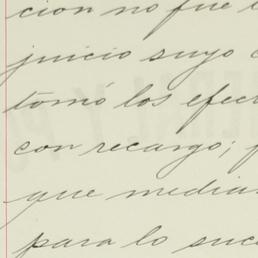 cion no fue
juicio suyo
tomó los efec
con recargo;
que media
para lo suc